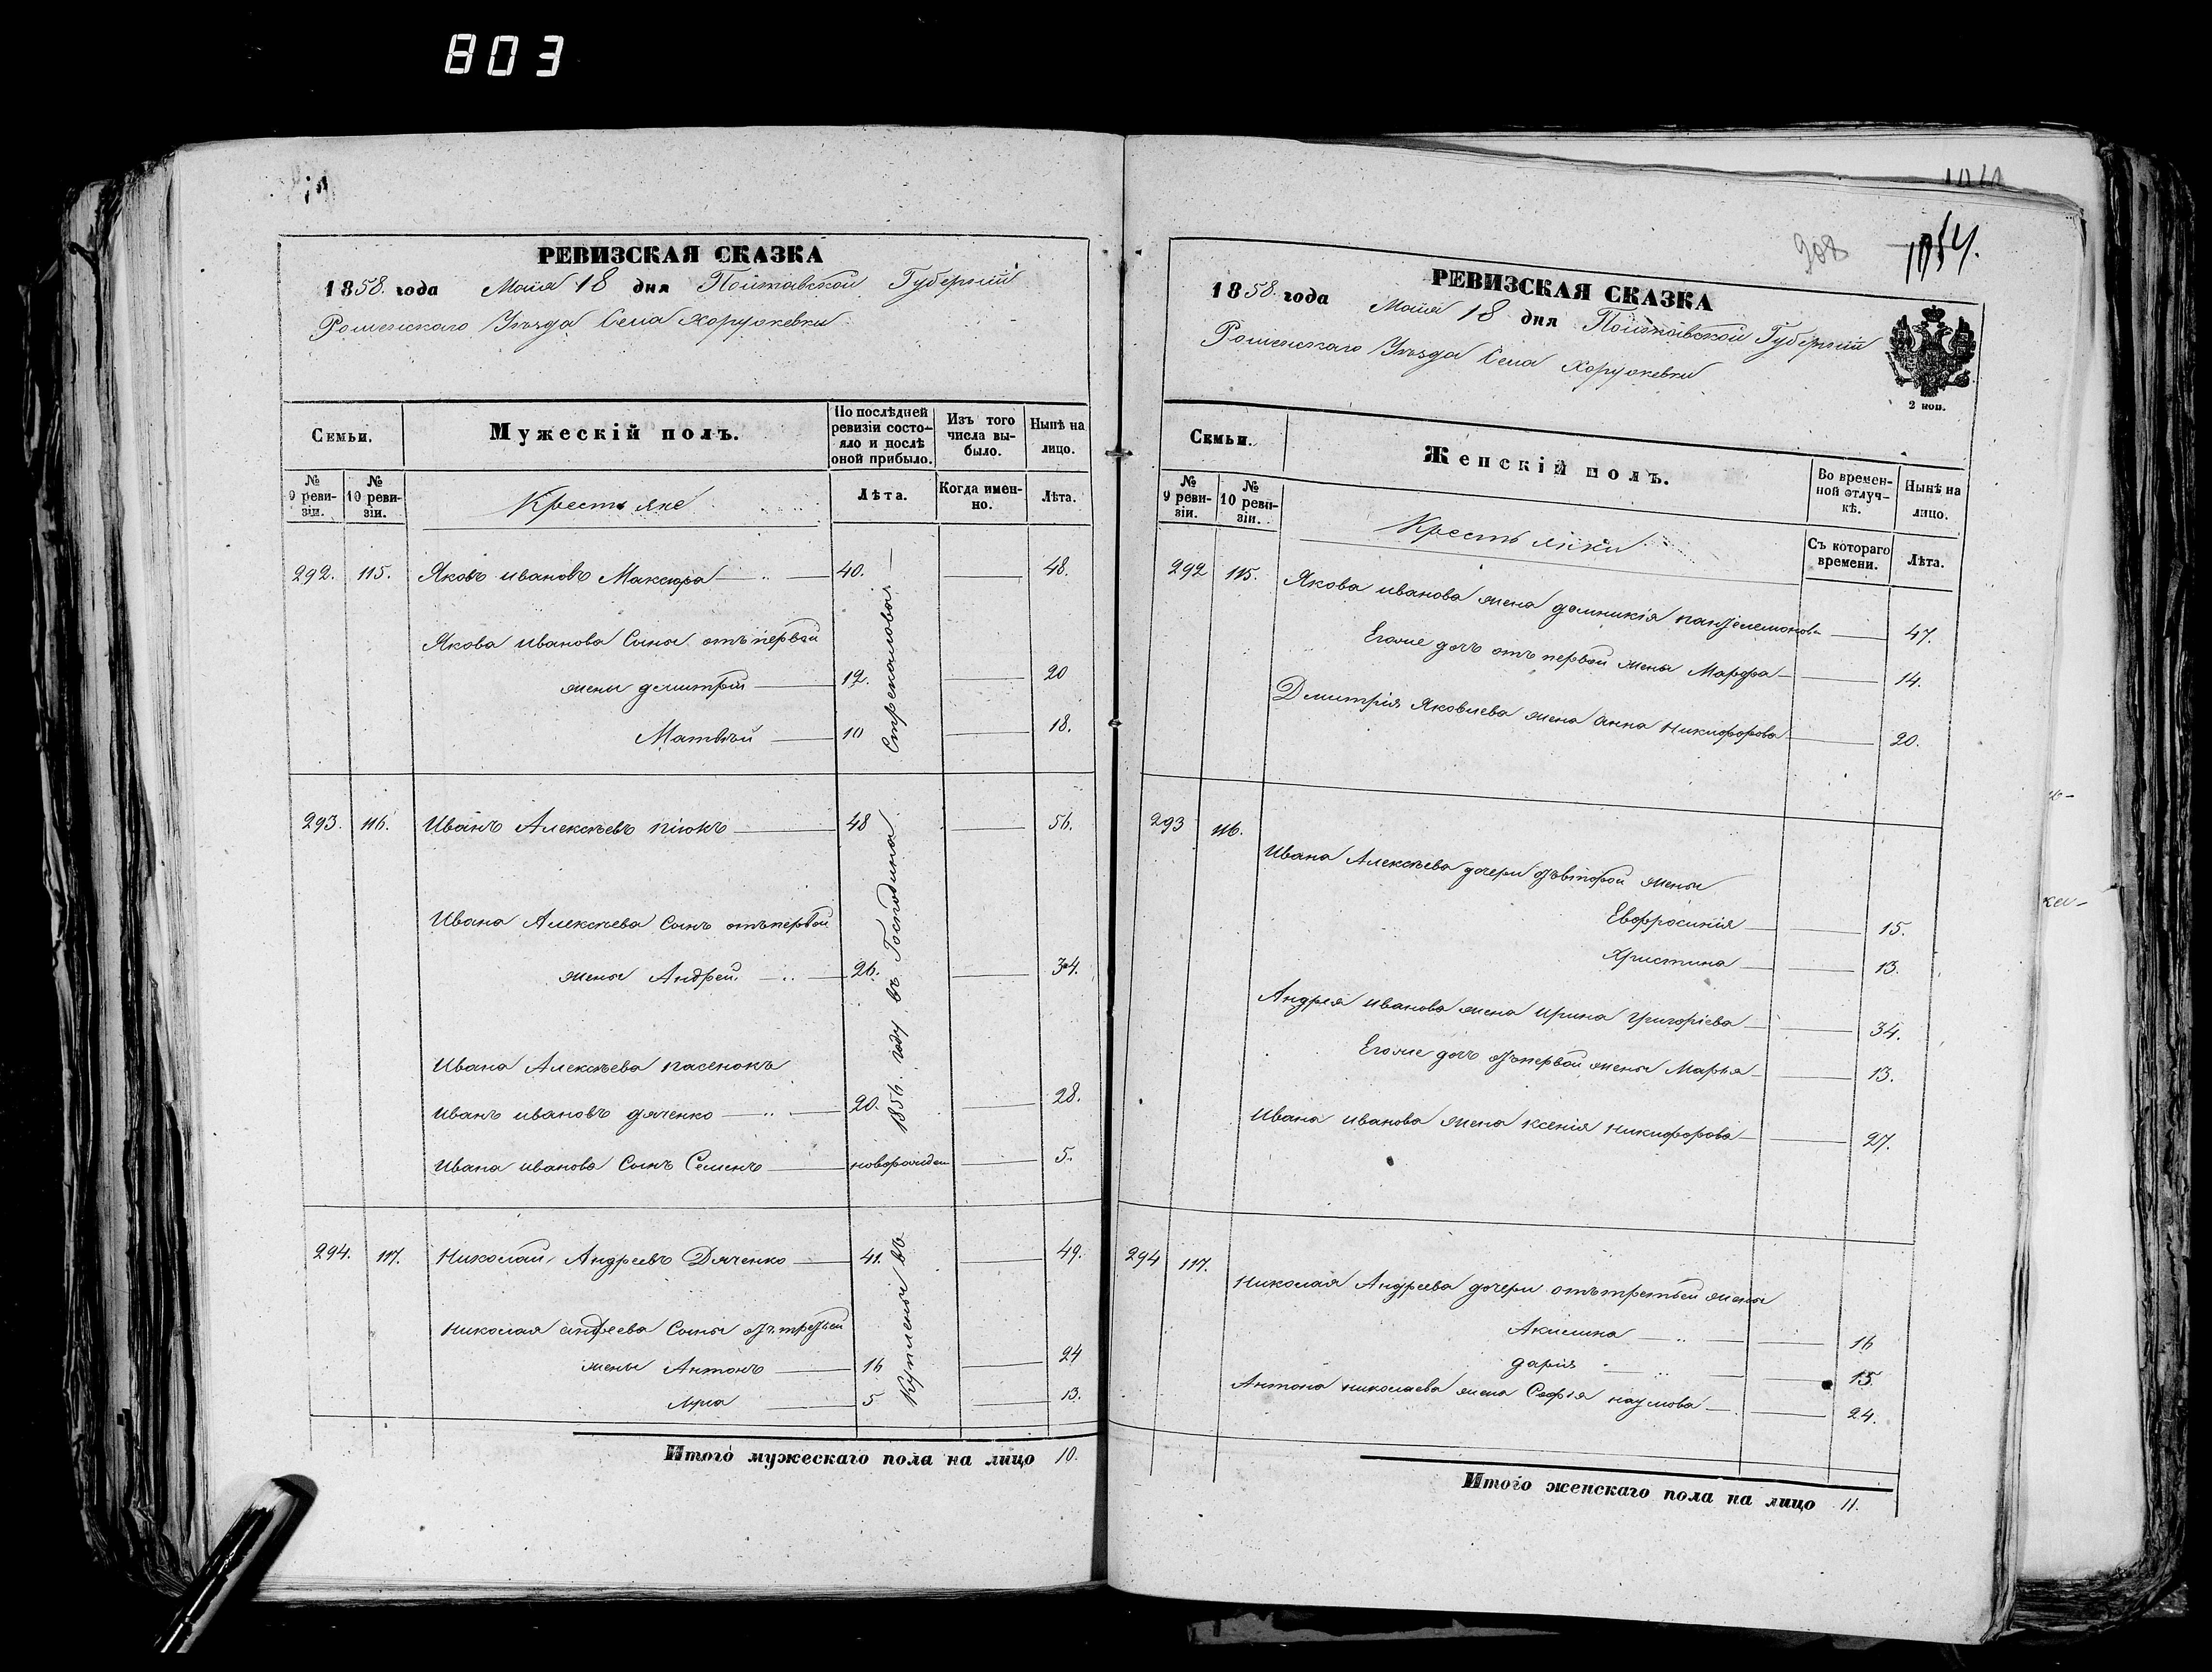 803
РЕВИЗСКАЯ СКАЗКА
1858. года Маія 18 дня Полтавской Губерніи
Роменскаго Уѣзда Села Хоружевки
Семьи.
Мужескій полъ.
По послѣдней ревизіи состояло и послѣ оной прибыло.
Изъ того числа выбыло.
Нынѣ на лицо.
№ 9 ревизіи.
№ 10 ревизіи.
Крестьяне
Лѣта.
Когда именно.
Лѣта.
292. 115. Яковъ Ивановъ Максюра 40. 48.
Якова Иванова Сыны отъ первой
жены Дмитрій 12. 20
Матвѣй 10 18.
293. 116. Иванъ Алексѣевъ 48 56.
Ивана Алексѣева Сынъ отъ первой
жены Андрей 26. 34.
Ивана Алексѣева пасенокъ
Иванъ Ивановъ Дяченко 20. 28.
Ивана Иванова Сынъ Семенъ новорожден 5.
294. 117. Николай Андреевъ Дяченко 41. 49.
Николая Андреева Сыны отъ третьей
жены Антонъ 16 24
5 13.
Купленые въ 1856. году въ Господина Стрекаловых
Итого мужескаго пола на лицо 10.
208 1054.
РЕВИЗСКАЯ СКАЗКА
1858. года Маія 18 дня Полтавской Губерніи
Роменскаго Уѣзда Села Хоружевки
2 коп.
Семьи.
Женскій полъ.
Во временной отлучкѣ.
Нынѣ на лицо.
№ 9 ревизіи.
№ 10 ревизіи.
Крестьянки
Съ котораго времени.
Лѣта.
292 115. Якова Иванова жена Домникія Пантелемонова 47.
Егоже дочь отъ первой жены Марфа 14.
Дмитрія Яковлева жена Анна Никифорова 20.
293 116.
Ивана Алексѣева дочери отъ второй жены
Евфросинія 15.
Христина 13.
Андрея Иванова жена Ирина Григоріева 34.
Егоже дочь отъ первой жены Марья 13.
Ивана Иванова жена Ксенія Никифорова 27.
294 117.
Николая Андреева дочери отъ третьей жены
Акилина 16
Дарія 15.
Антона Николаева жена Софія Наумова 24.
Итого женскаго пола на лицо 11.